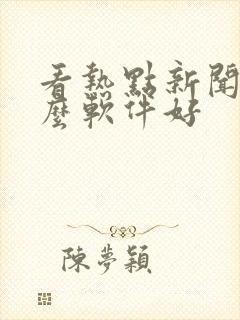 看熱點新聞
麼軟件好
陳夢穎